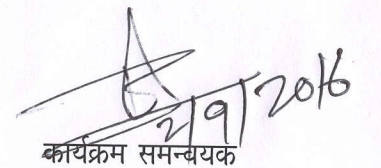 2/9/2016
कार्यक्रम समन्वयक